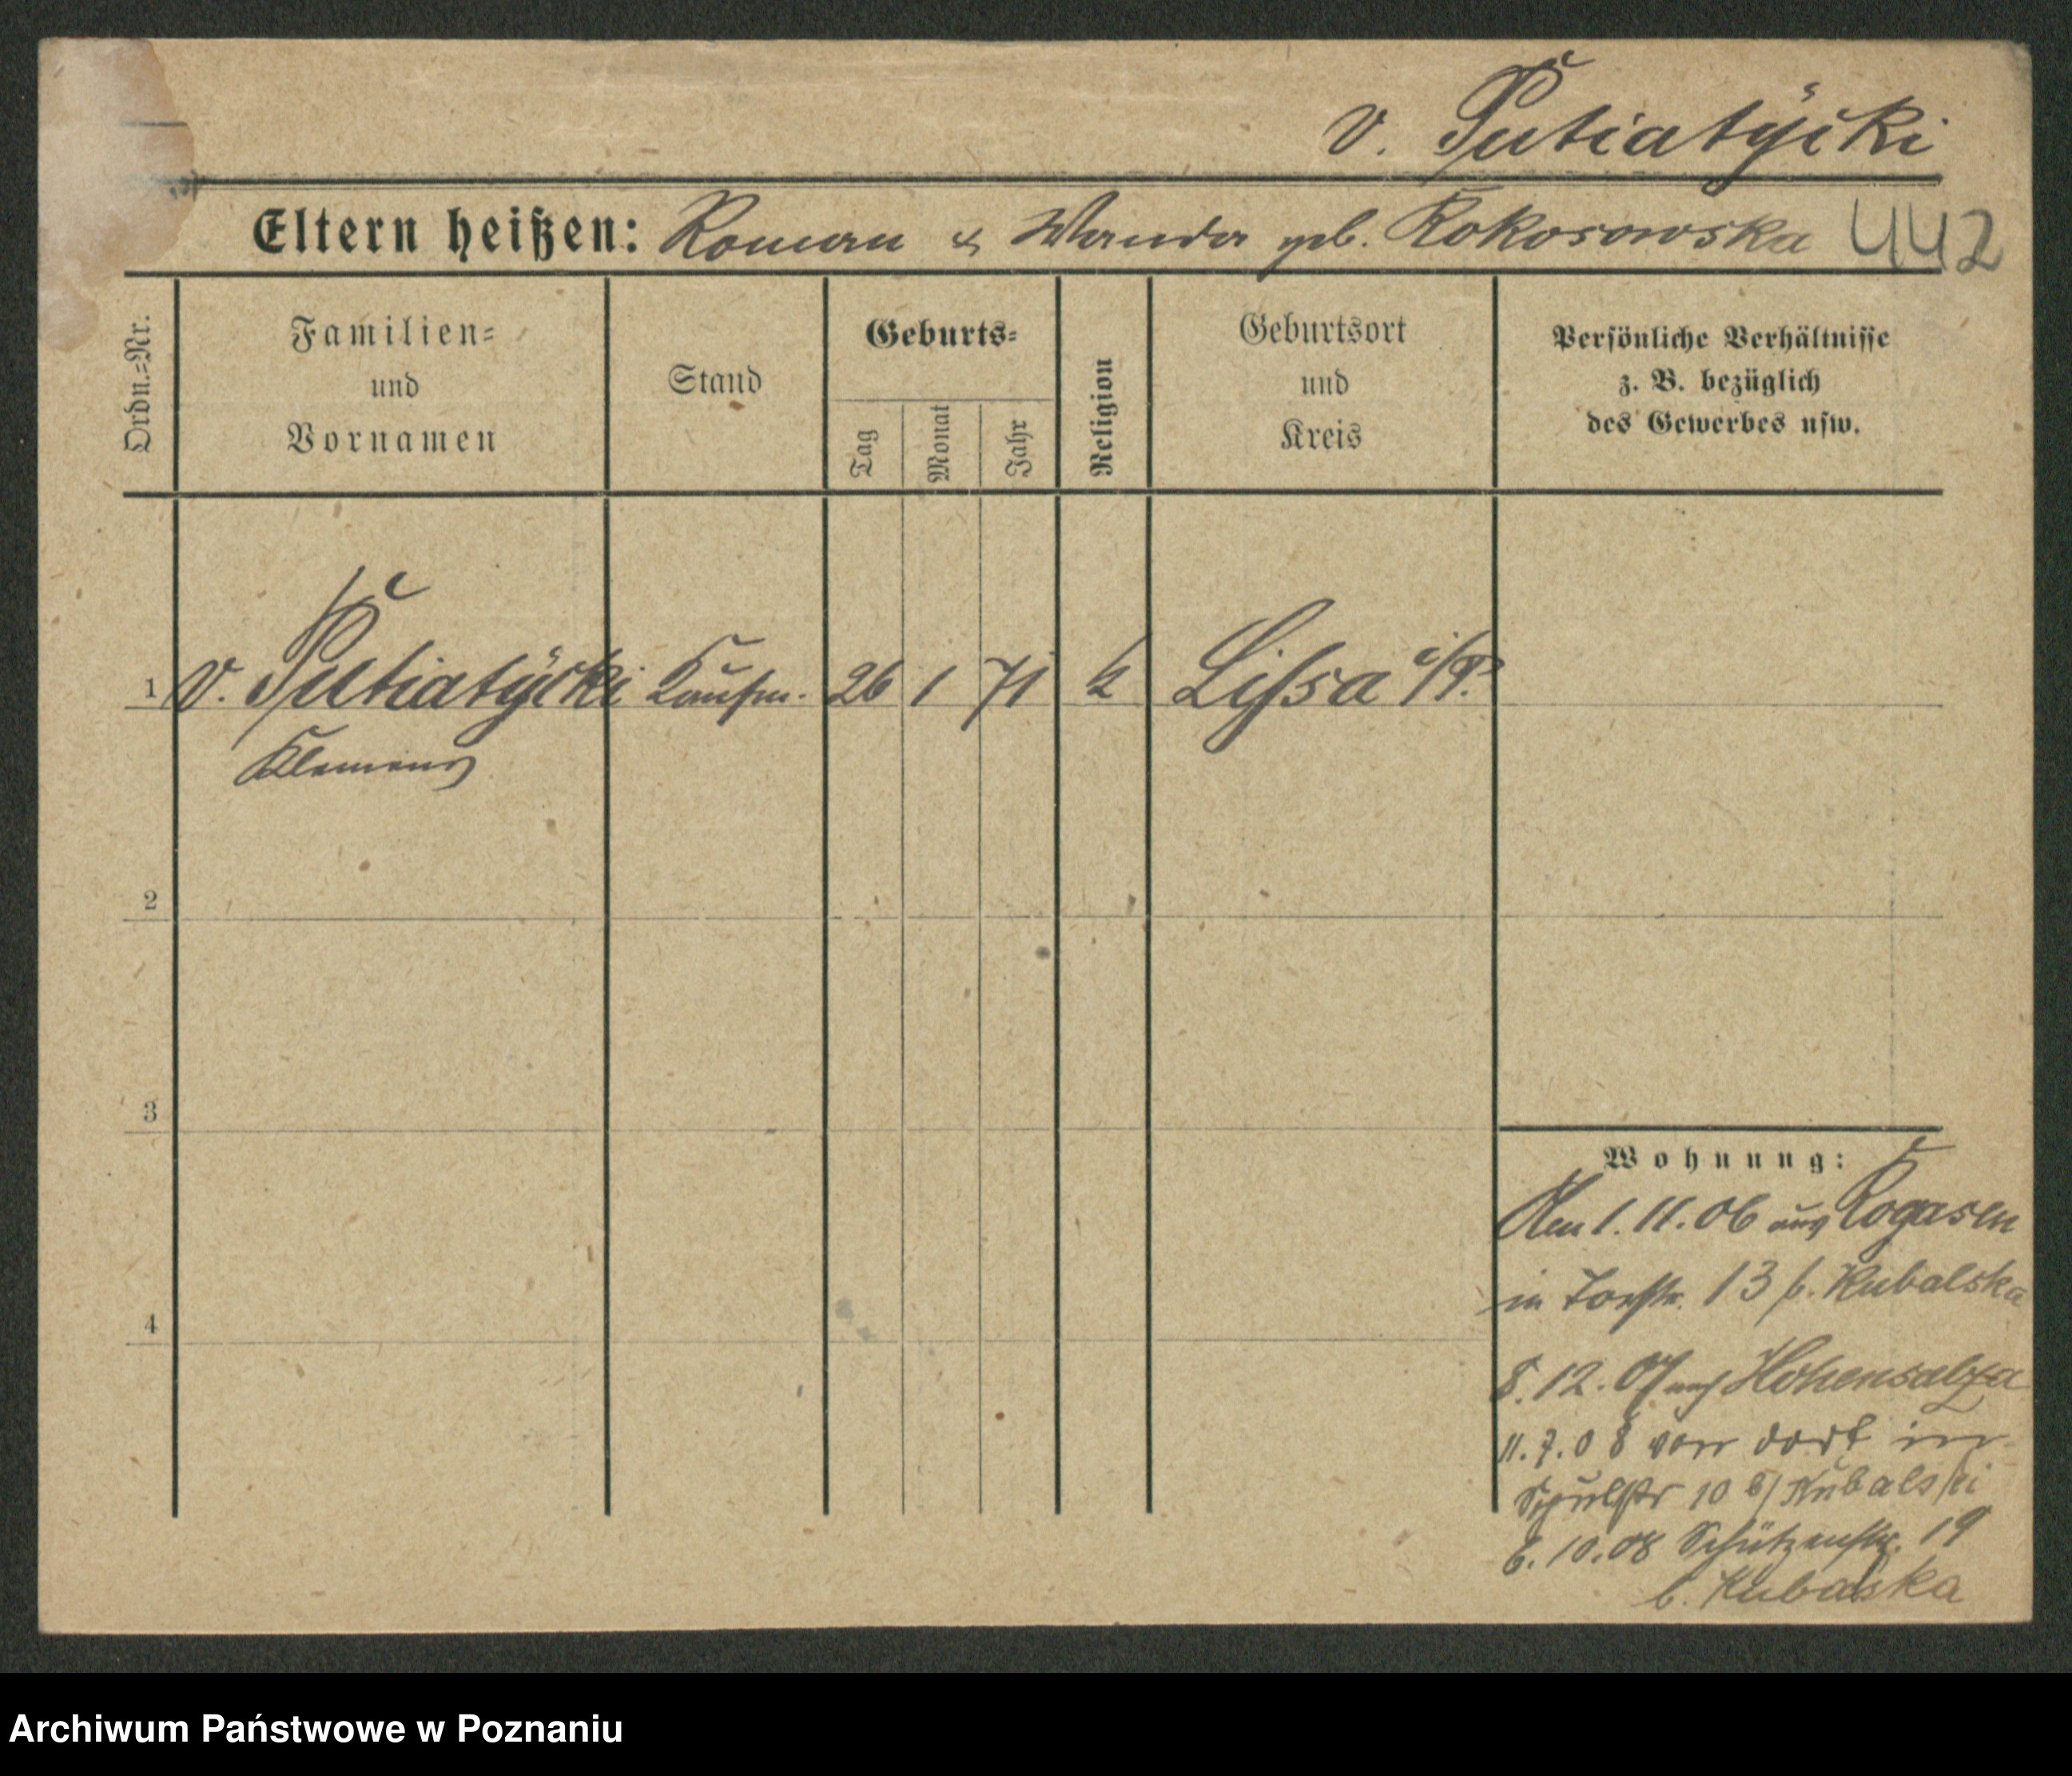 v. Putiatÿcki
Eltern heißen: Roman & Wanda geb. Kokosowska 442
Ordn.-Nr.
Familien-
und
Vornamen
Stand
Geburts-
Tag
Monat
Jahr
Religion
Geburtsort
und
Kreis
Persönliche Verhältnisse
z. B. bezüglich
des Gewerbes usw.
1 v. Putiatÿcki Kaufm. 26 1 71 k Lissa i/P.
Klemens
2
3
4
Wohnung:
Am 1.11.06 aus Rogasen
in Torstr. 13 b. Kubalska
8.12.07 nach Hohensalza
11.7.08 von dort in
Schulstr 10 b/ Kubalski
6.10.08 Schützenstr. 19
b. Kubalska
Archiwum Państwowe w Poznaniu